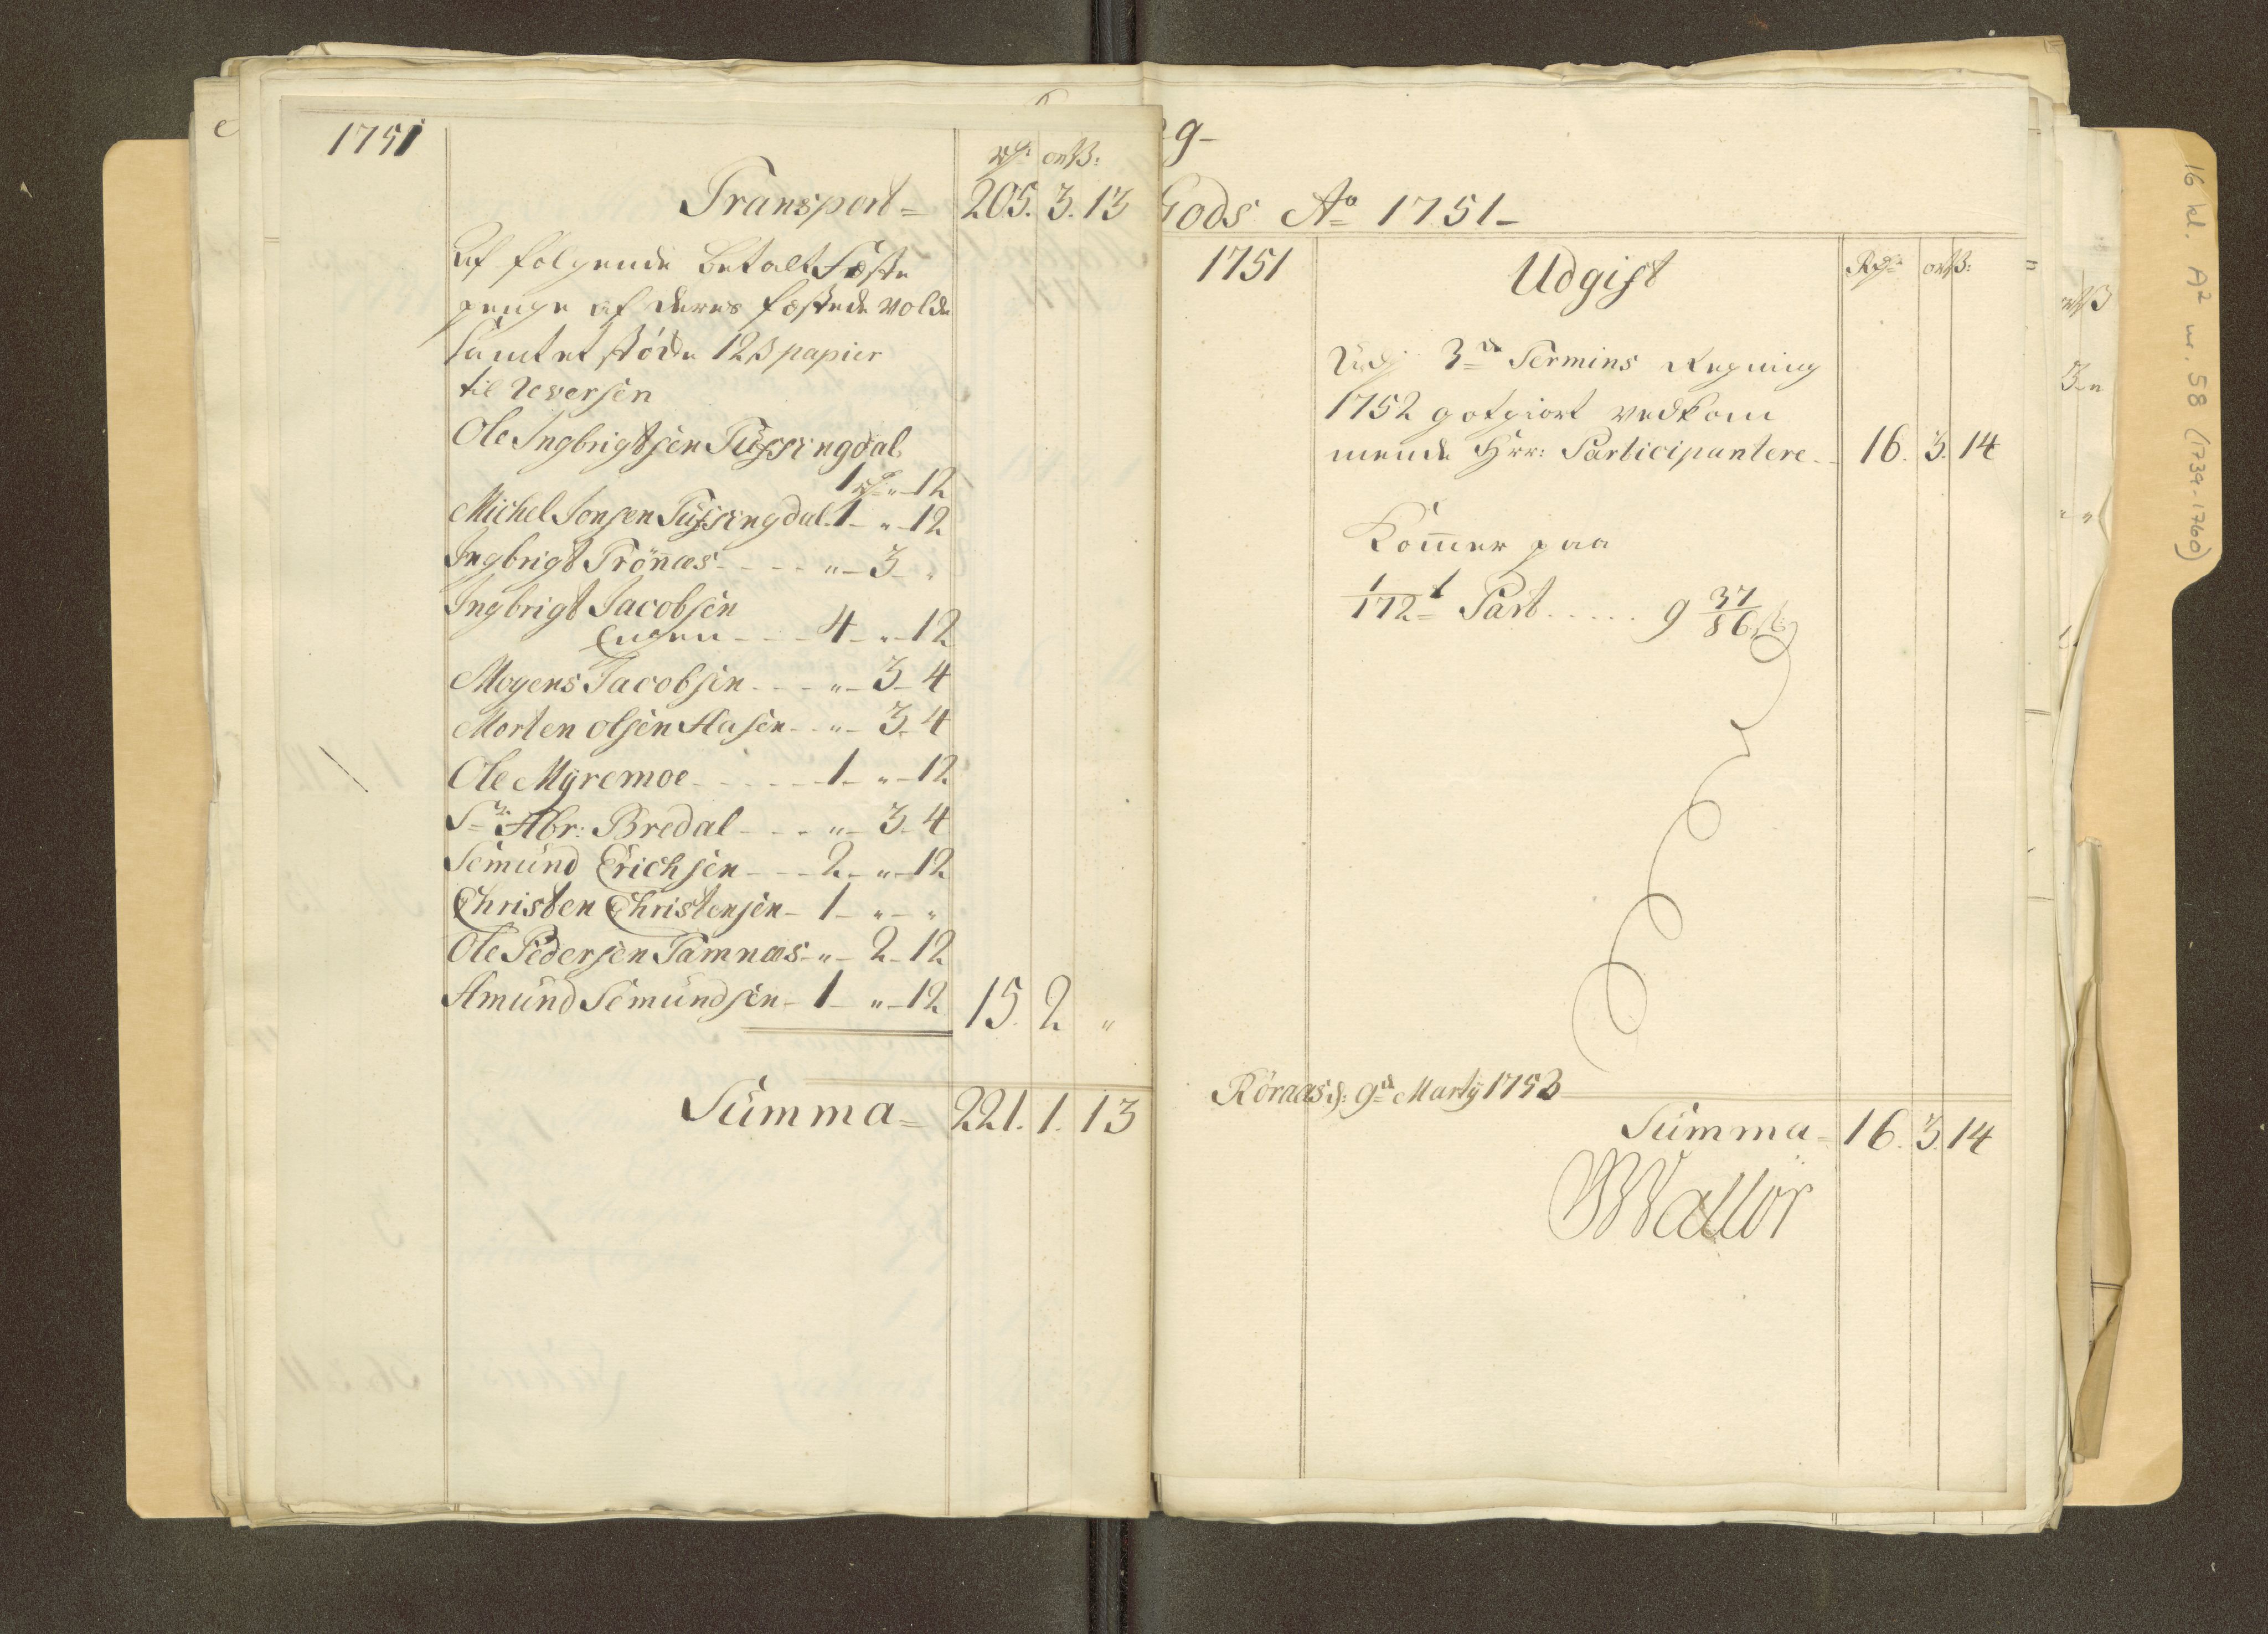 1751
rd: ort ß:
Transport = 205. 3. 13
Af folgende betalt Fæste
penge af deres fæstede volde
samt et støcke 12 ß papier
til Reversen
Ole Ingbrigtsen Tüfsingdal
1 rd " - 12
Michel Jonsen Tüfsingdal. 1 - " - 12
Ingbrigt Trönnas - - - - " - 3 - "
Ingbrigt Jacobsen
Engen - - - 4 - " - 12
Mogens Jacobsen - - - " - 3 - 4
Morten Olsen Aasen - - " - 3 - 4
Ole Mÿremoe - - - - - 1 - " - 12
Sr. Abr: Bredal - - - " - 3 - 4
Semünd Erichsen - - - 2 - " - 12
Christen Christensen - 1 - " - "
Ole Pedersen Tamnæs - " - 2 - 12
Amünd Semündsen - 1 - " - 12 15. 2 "
Sümma = 221. 1. 13
g -
Gods Ao 1751 -
1751 Udgift Rd: ort ß:
Udj 3de Termins Regning
1752 gotgiort vedkom
mende Hrr: Participantere - 16. 3. 14
Kom̅er paa
1/172t Part . . . . . 9 37/86 ß
Röraas d: 9de Martÿ 1753
Sümma = 16. 3. 14
ort ß
3 "
16 kl. A2 nr. 58 (1739-1760)